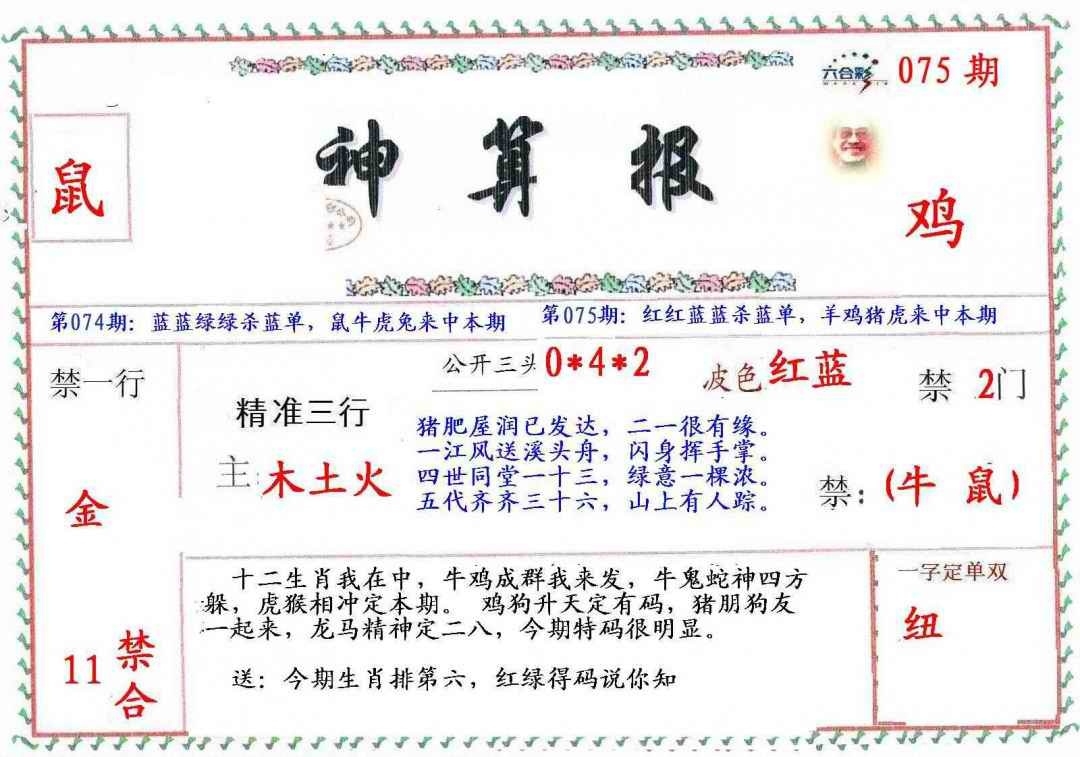 六合彩 075 期
神算报
鼠
鸡
第074期：蓝蓝绿绿杀蓝单，鼠牛虎兔来中本期
第075期：红红蓝蓝杀蓝单，羊鸡猪虎来中本期
禁一行
金
11 禁合
精准三行
主:木土火
公开三头 0*4*2
波色 红蓝
禁 2门
猪肥屋润已发达，二一很有缘。
一江风送溪头舟，闪身挥手掌。
四世同堂一十三，绿意一棵浓。
五代齐齐三十六，山上有人踪。
禁：（牛 鼠）
十二生肖我在中，牛鸡成群我来发，牛鬼蛇神四方
躲，虎猴相冲定本期。 鸡狗升天定有码，猪朋狗友
一起来，龙马精神定二八，今期特码很明显。
送：今期生肖排第六，红绿得码说你知
一字定单双
纽